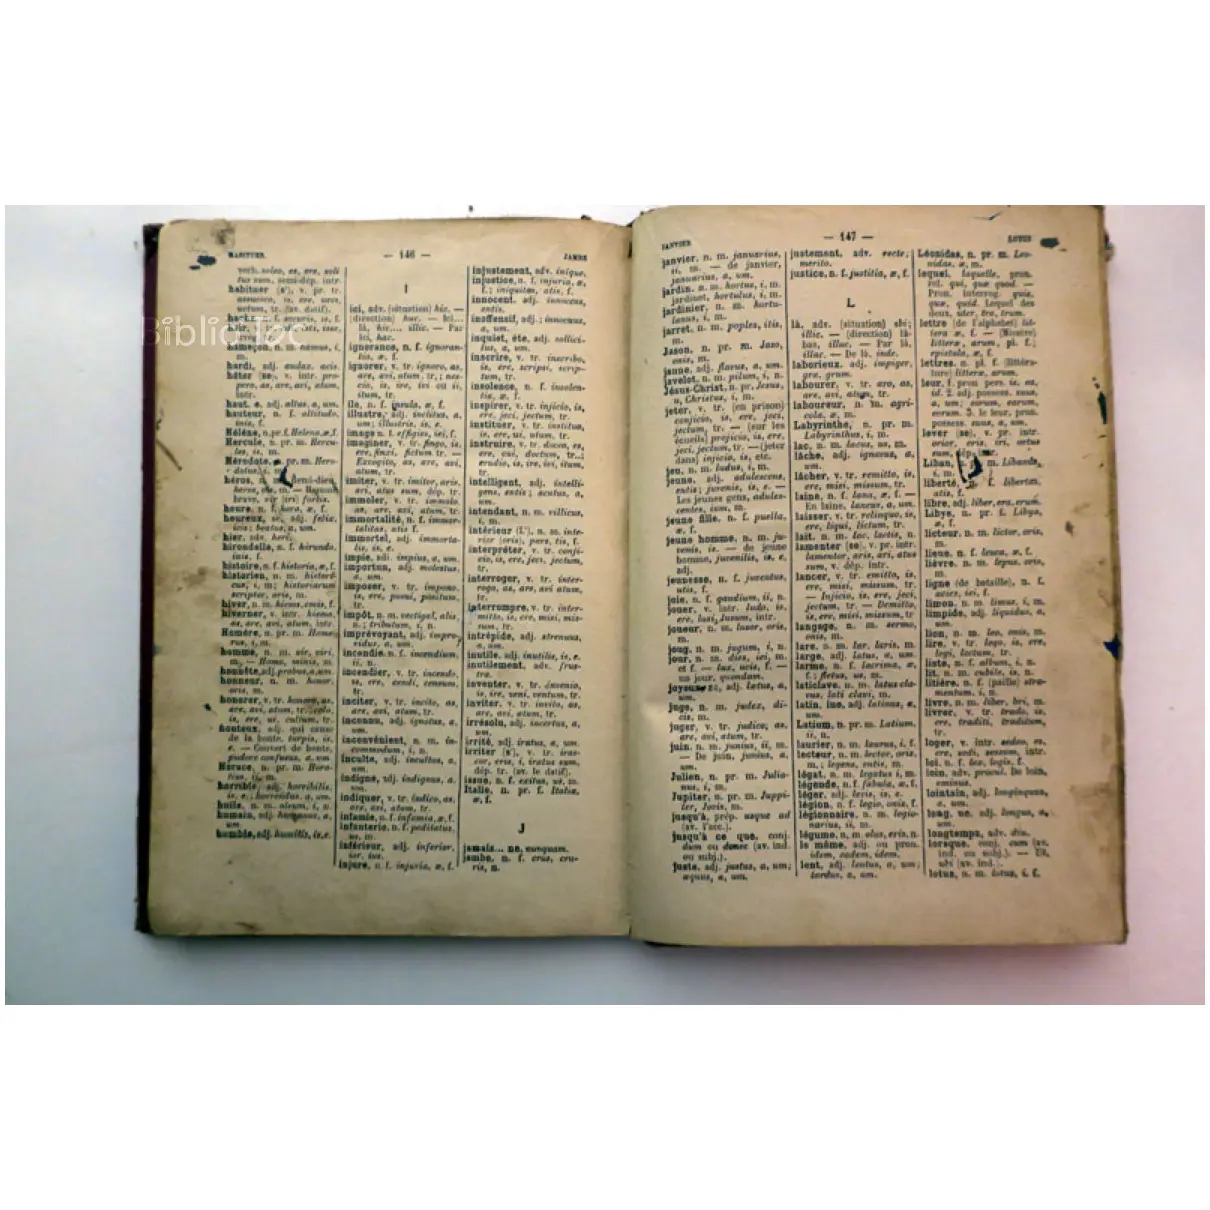 HABITUER.
— 146 —
JAMBE
verb. soleo, es, ere, soli
tus sum, semi-dép. intr.
habituer (s'), v. pr. tr.
assuesco, is, ere, uevi,
uetum, tr. (av. datif).
n. f. securis, is, f.
hameçon, n. m. hamus, i,
m.
hardi, adj. audax, acis
hâter (se), v. intr. pro-
pero, as, are, avi, atum,
intr.
haut, e, adj. altus, a, um.
hauteur, n. f. altitudo,
inis, f.
Hélène, n. pr. f. Helena, æ, f.
Hercule, n. pr. m. Hercu-
les, is, m.
Hérodote, n. pr. m. Hero-
dotus, i, m.
héros, n. m. (demi-dieu)
heros, ois, m. — Homme
brave, vir (iri) fortis.
heure, n. f. hora, æ, f.
heureux, se, adj. felix,
icis; beatus, a, um.
hier, adv. heri.
hirondelle, n. f. hirundo,
inis, f.
histoire, n. f. historia, æ, f.
historien, n. m. histori-
cus, i, m; historiarum
scriptor, oris, m.
hiver, n. m. hiems, emis, f.
hiverner, v. intr. hiemo,
as, are, avi, atum, intr.
Homère, n. pr. m. Home-
rus, i, m.
homme, n. m. vir, viri,
m. — Homo, minis, m.
honnête, adj. probus, a, um.
honneur, n. m. honor,
oris, m.
honorer, v. tr. honoro, as,
are, avi, atum, tr. colo,
is, ere, ui, cultum, tr.
honteux, adj. qui cause
de la honte, turpis, is,
e. — Couvert de honte,
pudore confusus, a, um
Horace, n. pr. m. Hora-
tius, ii, m.
horrible, adj. horribilis,
is, e; horrendus, a, um.
huile, n. m. oleum, i, n.
humain, adj. humanus, a,
um.
humble, adj. humilis, is, e.
I
ici, adv. (situation) hic. —
(direction) huc. — Ici...
là, hic... illic. — Par
ici, hac.
ignorance, n. f. ignoran-
tia, æ, f.
ignorer, v. tr. ignoro, as,
are, avi, atum, tr.; nes-
cio, is, ire, ivi ou ii,
itum, tr.
île, n. f. insula, æ, f.
illustre, adj. inclitus, a,
um; illustris, is, e.
image n. f. effigies, iei, f.
imaginer, v. tr. fingo, is,
ere, finxi, fictum tr. —
Excogito, as, are, avi,
atum, tr.
imiter, v. tr. imitor, aris,
ari, atus sum, dép. tr.
immoler, v. tr. immolo,
as, are, avi, atum, tr.
immortalité, n. f. immor-
talitas, atis f.
immortel, adj. immorta-
lis, is, e.
impie, adj. impius, a, um.
importun, adj. molestus,
a, um.
imposer, v. tr. impono,
is, ere, posui, positum,
tr.
impôt, n. m. vectigal, alis,
n.; tributum, i, n.
imprévoyant, adj. impro-
vidus, a, um.
incendie, n. f. incendium,
ii, n.
incendier, v. tr. incendo,
is, ere, cendi, censum,
tr.
inciter, v. tr. incito, as,
are, avi, atum, tr.
inconnu, adj. ignotus, a,
um.
inconvénient, n. m. in-
commodum, i, n.
inculte, adj. incultus, a,
um.
indigne, adj. indignus, a,
um.
indiquer, v. tr. indico, as,
are, avi, atum, tr.
infamie, n. f. infamia, æ, f.
infanterie, n. f. peditatus,
us, m.
inférieur, adj. inferior,
ior, ius.
injure, n. f. injuria, æ, f.
injustement, adv. inique.
injustice, n. f. injuria, æ,
f.; iniquitas, atis, f.
innocent, adj. innocens,
entis.
inoffensif, adj.; innocuus,
a, um.
inquiet, ète, adj. sollici-
tus, a, um.
inscrire, v. tr. inscribo,
is, ere, scripsi, scrip-
tum, tr.
insolence, n. f. insolen-
tia, æ, f.
inspirer, v. tr. injicio, is,
ere, jeci, jectum, tr.
instituer, v. tr. instituo,
is, ere, ui, utum, tr.
instruire, v. tr. doceo, es,
ere, cui, doctum, tr...;
erudio, is, ire, ivi, itum,
tr.
intelligent, adj. intelli-
gens, entis; acutus, a,
um.
intendant, n. m. villicus,
i, m.
intérieur (l'), n. m. inte-
rior (oris), pars, tis, f.
interpréter, v. tr. conji-
cio, is, ere, jeci, jectum,
tr.
interroger, v. tr. inter-
rogo, as, are, avi atum,
tr.
interrompre, v. tr. inter-
mitto, is, ere, misi, mis-
sum, tr.
intrépide, adj. strenuus,
a, um.
inutile, adj. inutilis, is, e.
inutilement, adv. frus-
tra.
inventer, v. tr. invenio,
is, ire, veni, ventum, tr.
inviter, v. tr. invito, as,
are, avi, atum, tr.
irrésolu, adj. incertus, a,
um.
irrité, adj. iratus, a, um.
irriter (s'), v. tr. iras-
cor, eris, i, iratus sum,
dép. tr. (av. le datif).
issue, n. f. exitus, us, m.
Italie, n. pr. f. Italia,
æ, f.
J
jamais... ne, nunquam.
jambe, n. f. crus, cru-
ris, n.
JANVIER
— 147 —
LOTUS
janvier, n. m. januarius,
ii, m. — de janvier,
januarius, a, um.
jardin, n. m. hortus, i, m.
jardinet, hortulus, i, m.
jardinier, n. m. hortu-
lanus, i, m.
jarret, n. m. poples, itis,
m.
Jason, n. pr. m. Jaso,
onis, m.
jaune, adj. flavus, a, um.
javelot, n. m. pilum, i, n.
Jésus-Christ, n. pr. Jesus,
u, Christus, i, m.
jeter, v. tr. (en prison)
conjicio, is, ere, jeci,
jectum, tr. — (sur les
écueils) projicio, is, ere,
jeci, jectum, tr. — (jeter
dans) injicio, is, etc.
jeu, n. m. ludus, i, m.
jeune, adj. adulescens,
entis; juvenis, is, e. —
Les jeunes gens, adules-
centes, ium, m.
jeune fille, n. f. puella,
æ, f.
jeune homme, n. m. ju-
venis, is. — de jeune
homme, juvenilis, is, e,
adj.
jeunesse, n. f. juventus,
utis, f.
joie, n. f. gaudium, ii, n.
jouer, v. intr. ludo, is,
ere, lusi, lusum, intr.
joueur, n. m. lusor, oris,
m.
joug, n. m. jugum, i, n.
jour, n. m. dies, iei, m.
et f. — lux, ucis, f. —
un jour, quondam.
joyeux, se, adj. lætus, a,
um.
juge, n. m. judex, di-
cis, m.
juger, v. tr. judico, as,
are, avi, atum, tr.
juin, n. m. junius, ii, m.
— De juin, junius, a,
um.
Julien, n. pr. m. Julia-
nus, i, m.
Jupiter, n. pr. m. Juppi-
ter, Jovis, m.
jusqu'à, prép. usque ad
(av. l'acc.).
jusqu'à ce que, conj.
dum ou donec (av. ind.
ou subj.).
juste, adj. justus, a, um;
æquus, a, um.
justement, adv. recte;
merito.
justice, n. f. justitia, æ, f.
L
là, adv. (situation) ibi;
illic. — (direction) là-
bas, illuc. — Par là,
illac. — De là, inde.
laborieux, adj. impiger,
gra, grum.
labourer, v. tr. aro, as,
are, avi, atum, tr.
laboureur, n. m. agri-
cola, æ, m.
Labyrinthe, n. pr. m.
Labyrinthus, i, m.
lac, n. m. lacus, us, m.
lâche, adj. ignavus, a,
um.
lâcher, v. tr. remitto, is,
ere, misi, missum, tr.
laine, n. f. lana, æ, f. —
En laine, laneus, a, um.
laisser, v. tr. relinquo, is,
ere, liqui, lictum, tr.
lait, n. m. lac, lactis, n.
lamenter (se), v. pr. intr.
lamentor, aris, ari, atus
sum, v. dép. intr.
lancer, v. tr. emitto, is,
ere, misi, missum, tr.
— Injicio, is, ere, jeci,
jectum, tr. — Demitto,
is, ere, misi, missum, tr
langage, n. m. sermo,
onis, m.
lare, n. m. lar, laris, m.
large, adj. latus, a, um.
larme, n. f. lacrima, æ,
f.; fletus, us, m.
laticlave, n. m. latus cla-
vus, lati clavi, m.
latin, ine, adj. latinus, a,
um.
Latium, n. pr. m. Latium,
ii, n.
laurier, n. m. laurus, i, f.
lecteur, n. m. lector, oris,
m.; legens, entis, m.
légat, n. m. legatus, i, m.
légende, n. f. fabula, æ, f.
léger, adj. levis, is, e.
légion, n. f. legio, onis, f.
légionnaire, n. m. legio-
narius, ii, m.
légume, n. m. olus, eris, n.
le même, adj. ou pron.
idem, eadem, idem.
lent, adj. lentus, a, um;
tardus, a, um.
Léonidas, n. pr. m. Leo-
nidas, æ, m.
lequel, laquelle, pron.
rel. qui, quæ quod. —
Pron. interrog. quis,
quæ, quid. Lequel des
deux, uter, tra, trum.
lettre (de l'alphabet) lit-
tera æ, f. — (Missive)
litteræ, arum, pl. f.;
epistula, æ, f.
lettres, n. pl. f. (littéra-
ture) litteræ, arum.
leur, f. pron. pers. is, ea,
id. 2. adj. possess. suus,
a, um; eorum, earum,
eorum. 3. le leur, pron.
possess. suus, a, um.
lever (se), v. pr. intr.
orior, eris, iri, ortus
sum, dép. intr.
Liban, n. pr. m. Libanus,
i, m.
liberté, n. f. libertas,
atis, f.
libre, adj. liber, era, erum.
Libye, n. pr. f. Libya,
æ, f.
licteur, n. m. lictor, oris,
m.
lieue, n. f. leuca, æ, f.
lièvre, n. m. lepus, oris,
m.
ligne (de bataille), n. f.
acies, iei, f.
limon, n. m. limus, i, m.
limpide, adj. liquidus, a,
um.
lion, n. m. leo, onis, m.
lire, v. tr. lego, is, ere,
legi, lectum, tr.
liste, n. f. album, i, n.
lit, n. m. cubile, is, n.
litière, n. f. (paille) stra-
mentum, i, n.
livre, n. m. liber, bri, m.
livrer, v. tr. trado, is,
ere, traditi, traditum,
tr.
loger, v. intr. sedeo, es,
ere, sedi, sessum, intr.
loi, n. f. lex, legis, f.
loin, adv. procul. De loin,
eminus.
lointain, adj. longinquus,
a, um.
long, ue, adj. longus, a,
um.
longtemps, adv. diu.
lorsque, conj. cum (av.
ind. ou subj.). — Ut,
ubi (av. ind.).
lotus, n. m. lotus, i, f.